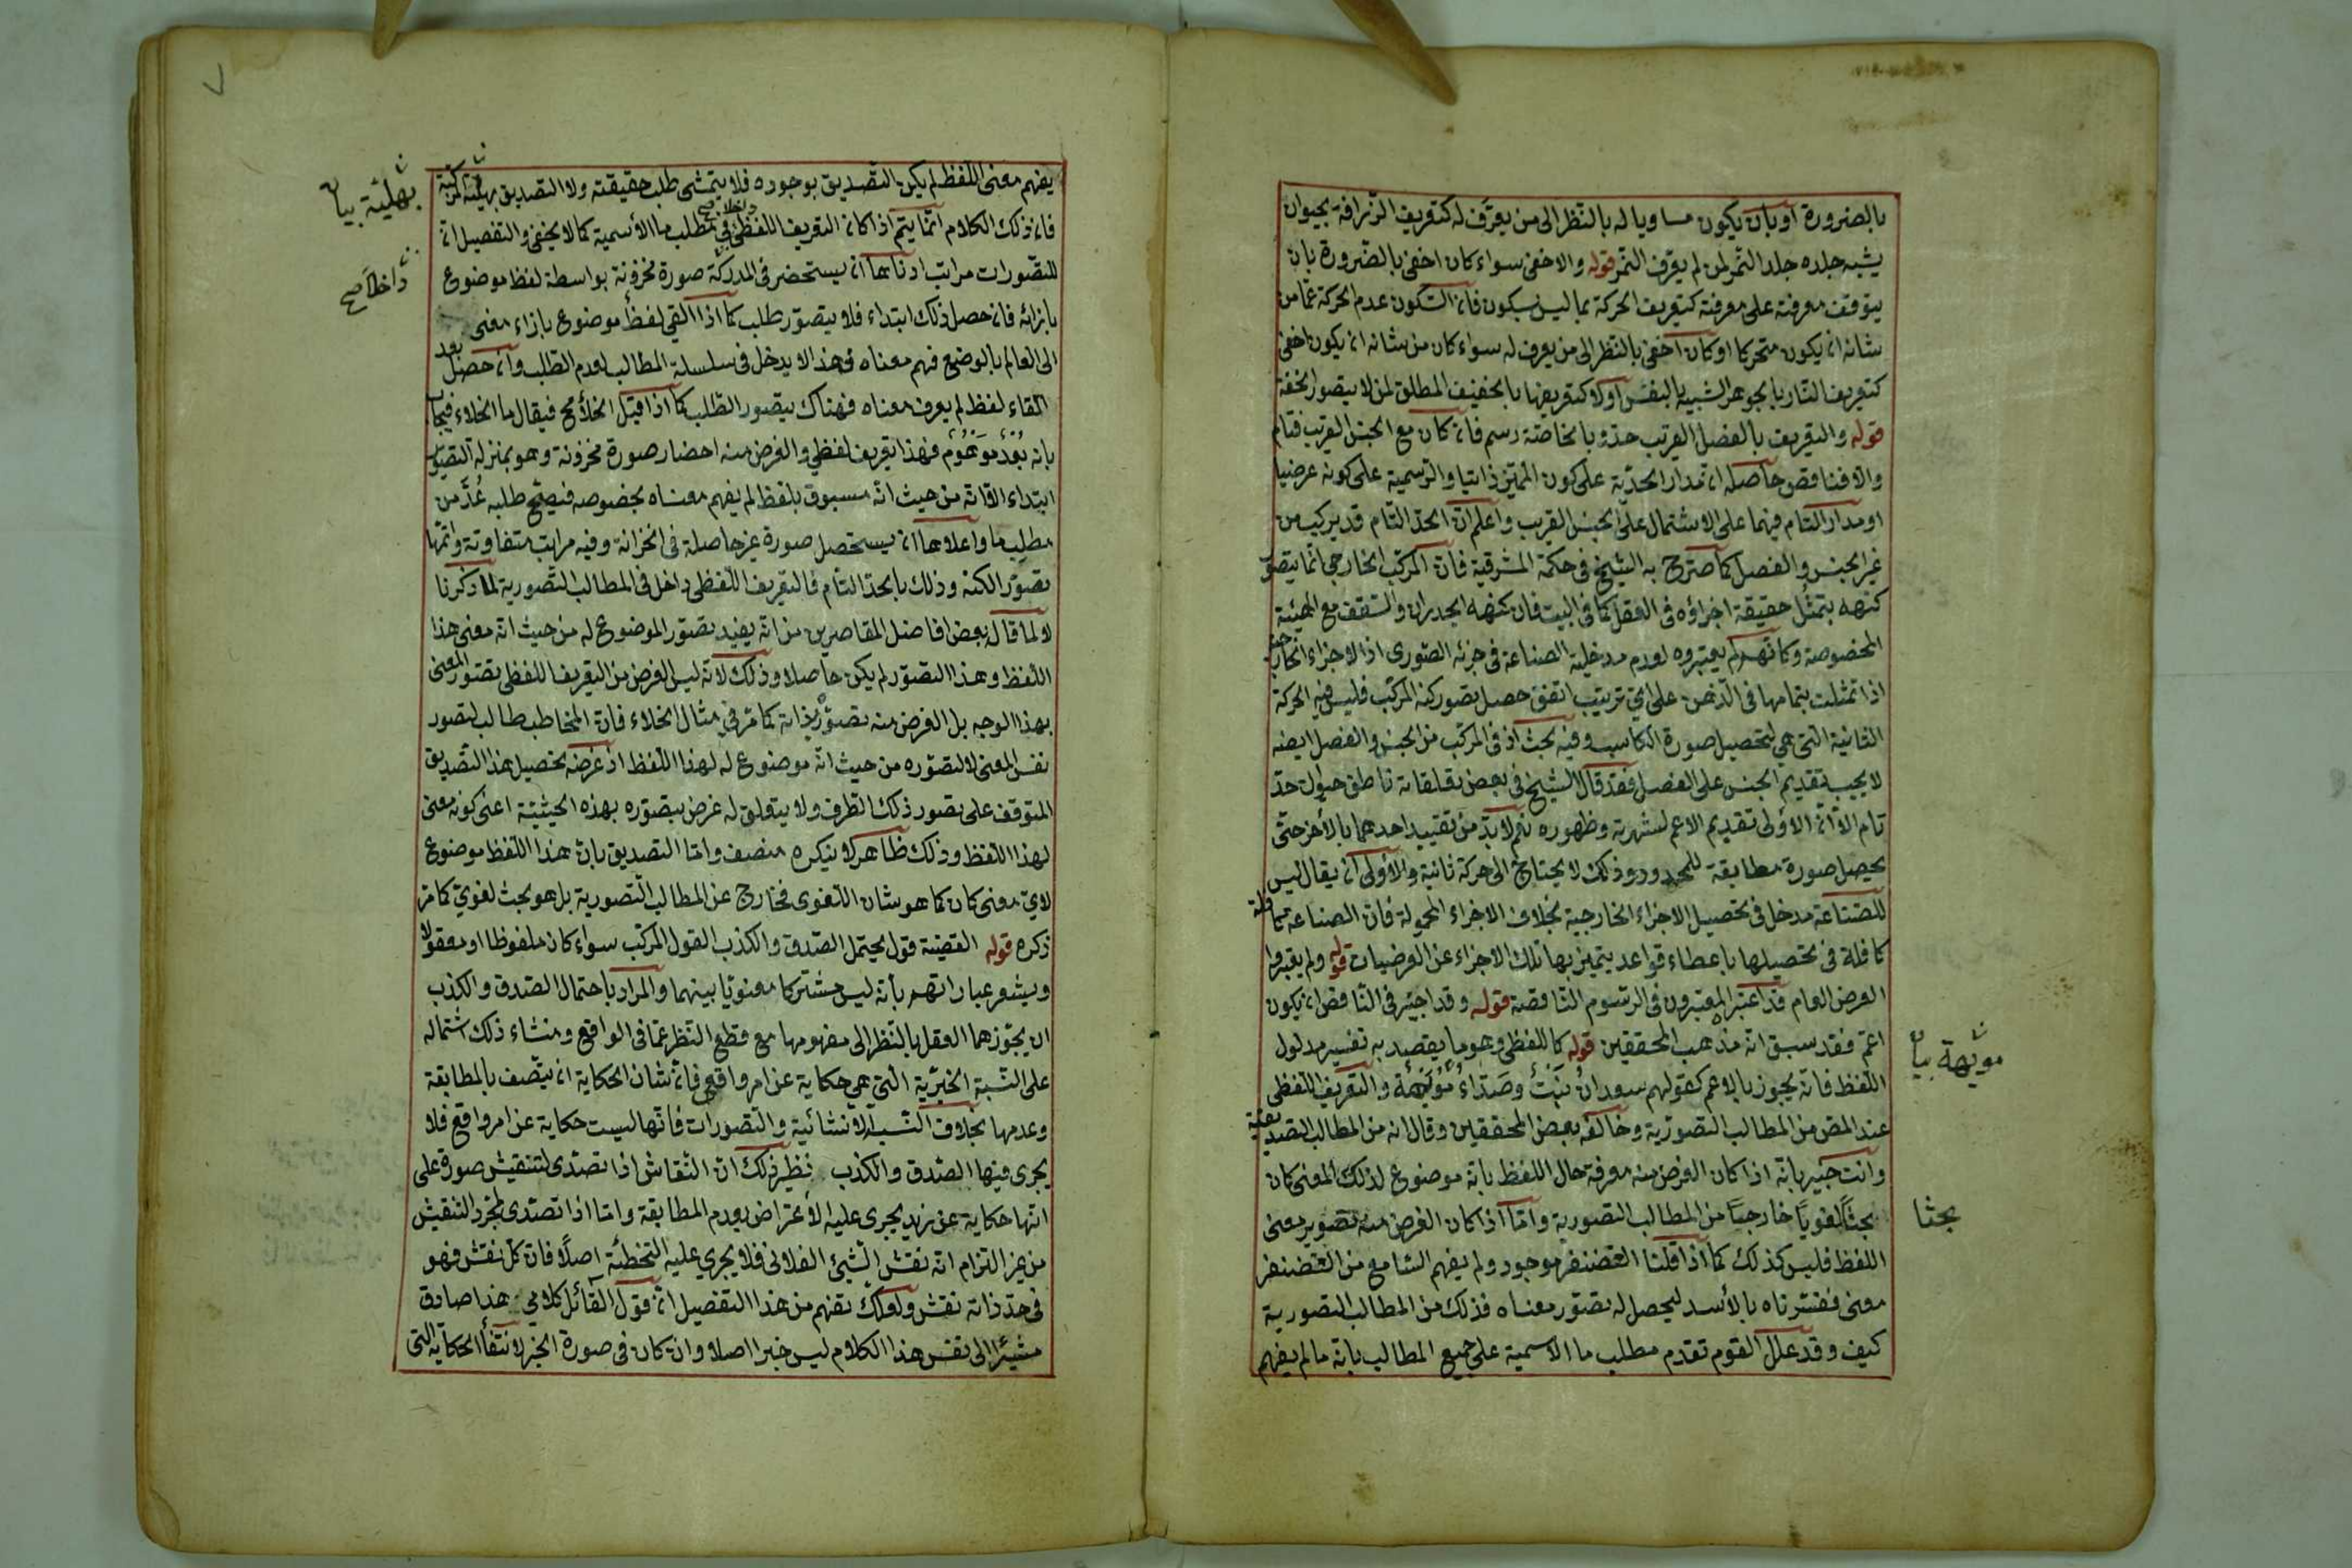 بالضرورة او بان يكون مساويا له بالنظر الى من يعرف له كتعريف الزرافة بحيوان
يشبه جلده جلد النمر لمن لم يعرف النمر قوله والاخفى سواء كان اخفى بالضرورة بان
يتوقف معرفته على معرفته كتعريف الحركة بما ليس بسكون فان السكون عدم الحركة عما من
شانه ان يكون متحركا او كان اخفى بالنظر الى من يعرف له سواء كان من شانه ان يكون اخفى
كتعريف النار بالجوهر الشبيه بالنفس او لا كتعريفها بالخفيف المطلق لمن لا يتصور الخفة
قوله والتعريف بالفصل القريب حد وبالخاصة رسم فان كان مع الجنس القريب فتام
والا فناقص حاصله ان مدار الحدية على كون المميز ذاتيا والرسمية على كونه عرضيا
او مدار التام فيهما على الاشتمال على الجنس القريب واعلم ان الحد التام قد يركب من
غير الجنس والفصل كما صرح به الشيخ في حكمة المشرقية فان المركب الخارجي انما يتصور
كنهه بتمثل حقيقة اجزاؤه في العقل كما في البيت فان كنهه الجدران والسقف مع الهيئة
المخصوصة وكانهم لم يعتبروه لعدم مدخلية الصناعة في جزئه الصوري اذ الاجزاء الخارجية
اذا تمثلت بتمامها في الذهن على اي ترتيب اتفق حصل تصور كنه المركب فليس فيه الحركة
الثانية التي هي لتحصيل صورة الكاسب وفيه بحث اذ في المركب من الجنس والفصل ايضه
لا يجب تقديم الجنس على الفصل فقد قال الشيخ في بعض تعليقاته ناطق حيوان حد
تام الا ان الاولى تقديم الاعم لشهرته وظهوره نعم لا بد من تقييد احدهما بالآخر حتى
يحصل صورة مطابقة للمحدود وذلك لا يحتاج الى حركة ثانية والاولى ان يقال ليس
للصناعة مدخل في تحصيل الاجزاء الخارجية بخلاف الاجزاء المحمولة فان الصناعة
كافلة في تحصيلها باعطاء قواعد يتميز بها تلك الاجزاء عن العرضيات قوله ولم يعتبروا
العرض العام قد اعتبر المعتبرون في الرسوم الناقصة قوله وقد اجيز في الناقص ان يكون
اعم فقد سبق انه مذهب المحققين قوله كاللفظي وهو ما يقصد به تفسير مدلول
اللفظ فانه يجوز بالاعم كقولهم سعدان نبت وصداء مويهة والتعريف اللفظي
عند المص من المطالب التصورية وخالفه بعض المحققين وقال انه من المطالب التصديقية
وانت خبير بانه اذا كان الغرض منه معرفة حال اللفظ بانه موضوع لذلك المعنى كان
بحثا لغويا خارجيا من المطالب التصورية واما اذا كان الغرض منه تصوير معنى
اللفظ فليس كذلك كما اذا قلنا الغضنفر موجود ولم يفهم السامع من الغضنفر
معنى ففسرناه بالأسد ليحصل له تصور معناه فذلك من المطالب التصورية
كيف وقد علل القوم تقدم مطلب ما الاسمية على جميع المطالب بانه ما لم يفهم
مويهة بيان
بحثا
يفهم معنى اللفظ لم يكن التصديق بوجوده فلا يتمشى طلب حقيقته ولا التصديق بهلية المركبة
فان ذلك الكلام انما يتم اذا كان التعريف اللفظي داخلا صح في مطلب ما الأسمية كما لا يخفى والتفصيل ان
للتصورات مراتب ادناها ان يستحضر في المدركة صورة مخزونة بواسطة لفظ موضوع
بازائه فان حصل ذلك ابتداء فلا يتصور طلب كما اذا القي لفظ موضوع بازاء معنى
الى العالم بالوضع فهم معناه فهذا لا يدخل في سلسلة المطالب لعدم الطلب وان حصل بعد
القاء لفظ لم يعرف معناه فهناك يتصور الطلب كما اذا قيل الخلأ مح فيقال ما الخلاء فيجاب
بانه بعد موهوم فهذا تعريف لفظي والغرض منه احضار صورة مخزونة وهو بمنزلة التصور
ابتداء الا انه من حيث انه مسبوق بلفظ لم يفهم معناه بخصوصه فيصح طلبه عد من
مطلب ما واعلاها ان يستحصل صورة غير حاصلة في الخزانة وفيه مراتب متفاوتة واتمها
تصور الكنه وذلك بالحد التام فالتعريف اللفظي داخل في المطالب التصورية لما ذكرنا
لا لما قاله بعض افاضل المعاصرين من انه يفيد تصور الموضوع له من حيث انه معنى هذا
اللفظ وهذا التصور لم يكن حاصلا وذلك لانه ليس الغرض من التعريف اللفظي تصور المعنى
بهذا الوجه بل الغرض منه تصوره بذاته كما مر في مثال الخلاء فان المخاطب طالب لتصور
نفس المعنى لا لتصوره من حيث انه موضوع له لهذا اللفظ اذ غرضه تحصيل هذا التصديق
المتوقف على تصور ذلك الطرف ولا يتعلق له غرض بتصوره بهذه الحيثية اعنى كونه معنى
لهذا اللفظ وذلك ظاهر لا ينكره منصف واما التصديق بان هذا اللفظ موضوع
لاي معنى كان كما هو شان اللغوى فخارج عن المطالب التصورية بل هو بحث لغوي كما مر
ذكره قوله القضية قول يحتمل الصدق والكذب القول المركب سواء كان ملفوظا او معقولا
ويشعر عباراتهم بأنه ليس مشتركا معنويا بينهما والمراد باحتمال الصدق والكذب
ان يجوزهما العقل بالنظر الى مفهومها مع قطع النظر عما في الواقع ومنشاء ذلك اشتماله
على النسبة الخبرية التي هي حكاية عن امر واقع فان شان الحكاية ان يتصف بالمطابقة
وعدمها بخلاف النسب الانشائية والتصورات فانها ليست حكاية عن امر واقع فلا
يجرى فيها الصدق والكذب نظير ذلك ان النقاش اذا تصدى لتنقيش صورة على
انها حكاية عن زيد يجرى عليه الأعتراض بعدم المطابقة واما اذا تصدى لمجرد التنقيش
من غير التزام انه نقش الشئ الفلاني فلا يجري عليه التخطئة اصلا فان كل نقش فهو
في حد ذاته نقش ولعلك تفهم من هذا التفصيل ان قول القائل كلامي هذا صادق
مشيرا الى نفس هذا الكلام ليس خبرا اصلا وان كان في صورة الخبر لانتفأ الحكاية التى
بهلية بيان
داخلا صح